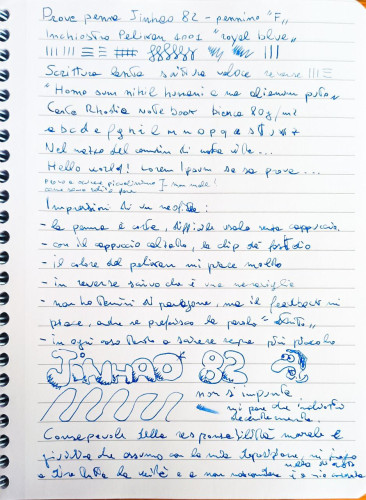 Prove penna Jinhao 82 - pennino "F"
Inchiostro Pelikan 4001 "royal blue"
Scrittura lenta scrittura veloce reverse
"Homo sum nihil humani a me alienum puto"
Carta Rhodia Notebook bianca 80g/m2
a b c d e f g h i l m n o p q r s t u v z
Nel mezzo del cammin di nostra vita...
Hello world! Lorem Ipsum se sa prova...
Impressioni di un neofita:
- la penna è corta, difficile usarla senza cappuccio
- con il cappuccio calzato, la clip dà fastidio
- il colore del pelikan mi piace molto
- in reverse scrivo che è una meraviglia
- non ho termini di paragone, ma il feedback mi
piace, anche se preferisco la parola "attrito"
- in ogni caso tendo a scrivere sempre più piccolo
JINHAO 82
non si impunta
mi pare che inchiostri
decentemente.
Consapevole della responsabilità morale e
giuridica che assumo con la mia deposizione, mi impegno
a dire tutta la verità e a non nascondere